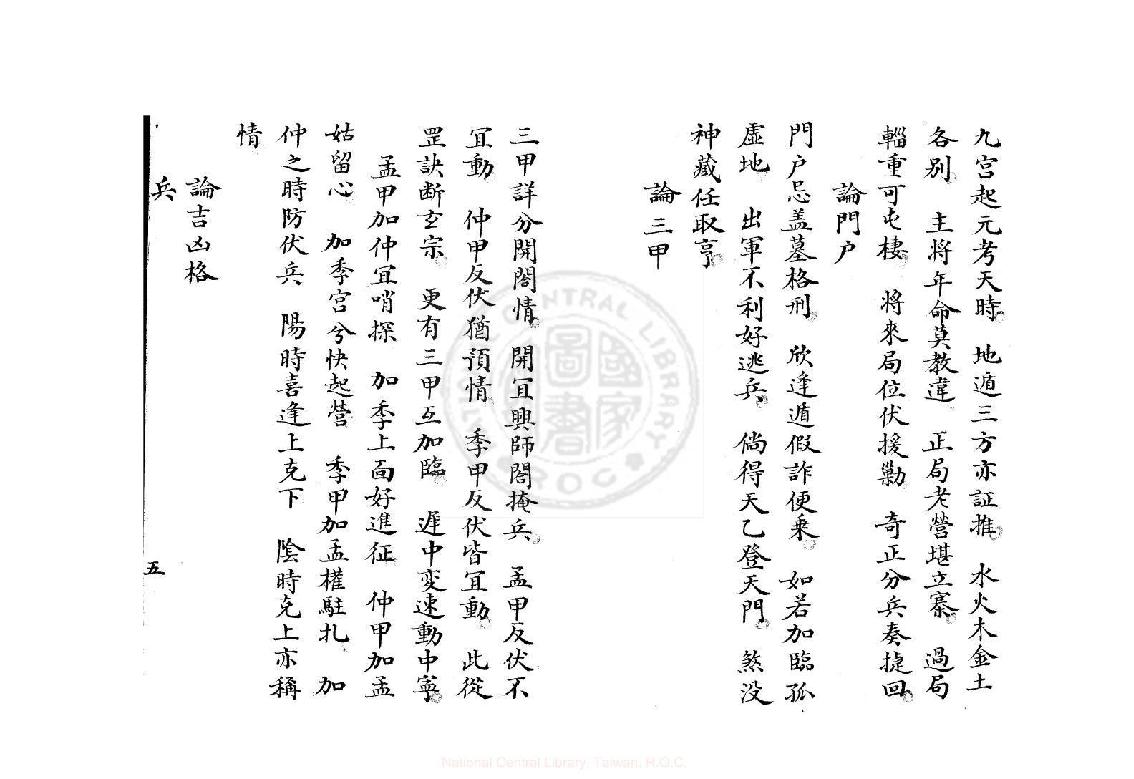 九宮起元考天時 地遁三方亦証推 水火木金土
各別 主將年命莫教違 正局老營堪立寨 過局
輜重可屯棲 將來局位伏援勦 奇正分兵奏捷回
論門戶
門戶忌蓋墓格刑 欣逢遁假詐便乘 如若加臨孤
虛地 出軍不利好逃兵 倘得天乙登天門 煞没
神藏任取亨
論三甲
三甲詳分開閤情 開宜興師閤掩兵 孟甲反伏不
宜動 仲甲反伏猶預情 季甲反伏皆宜動 此從
罡訣断玄宗 更有三甲互加臨 遲中変速動中寧
孟甲加仲宜哨探 加季上面好進征 仲甲加孟
姑留心 加季宮兮快起營 季甲加孟權駐扎 加
仲之時防伏兵 陽時喜逢上克下 陰時克上亦稱
情
論吉凶格
兵
五
國家圖書館
NATIONAL CENTRAL LIBRARY TAIWAN ROC
National Central Library, Taiwan, R.O.C.